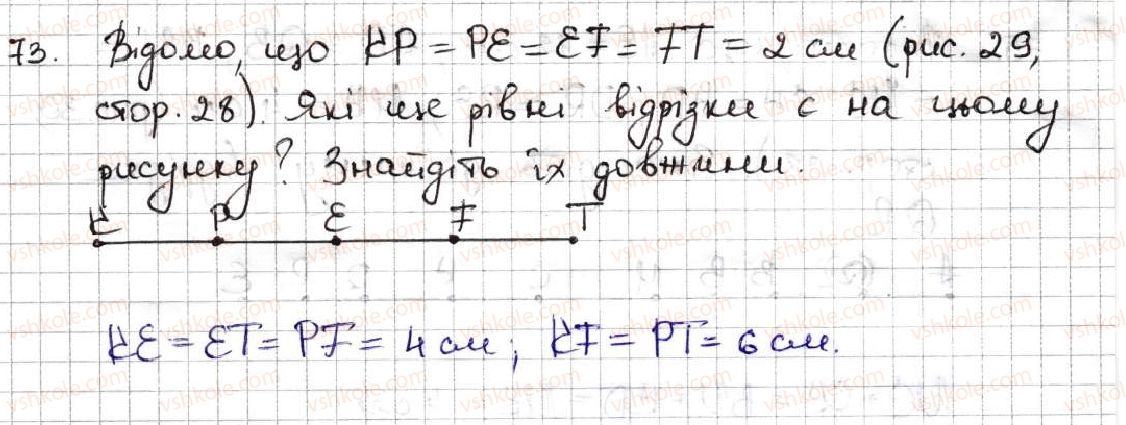 73. Відомо, що KP = PE = EF = FT = 2 см (рис. 29,
стор. 28). Які ще рівні відрізки є на цьому
рисунку? Знайдіть їх довжини.
K P E F T
KE = ET = PF = 4 см; KF = PT = 6 см.